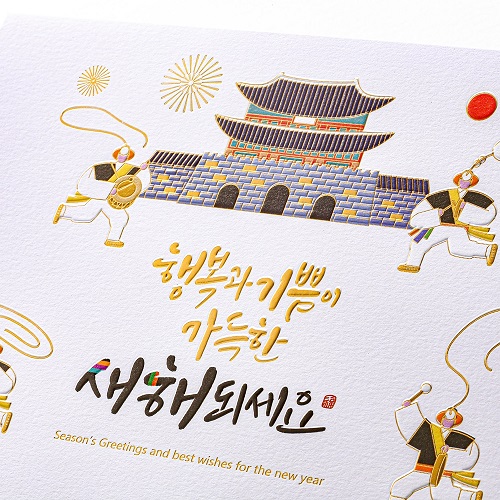 행복과 기쁨이
가득한
새해 되세요
Season's Greetings and best wishes for the new year